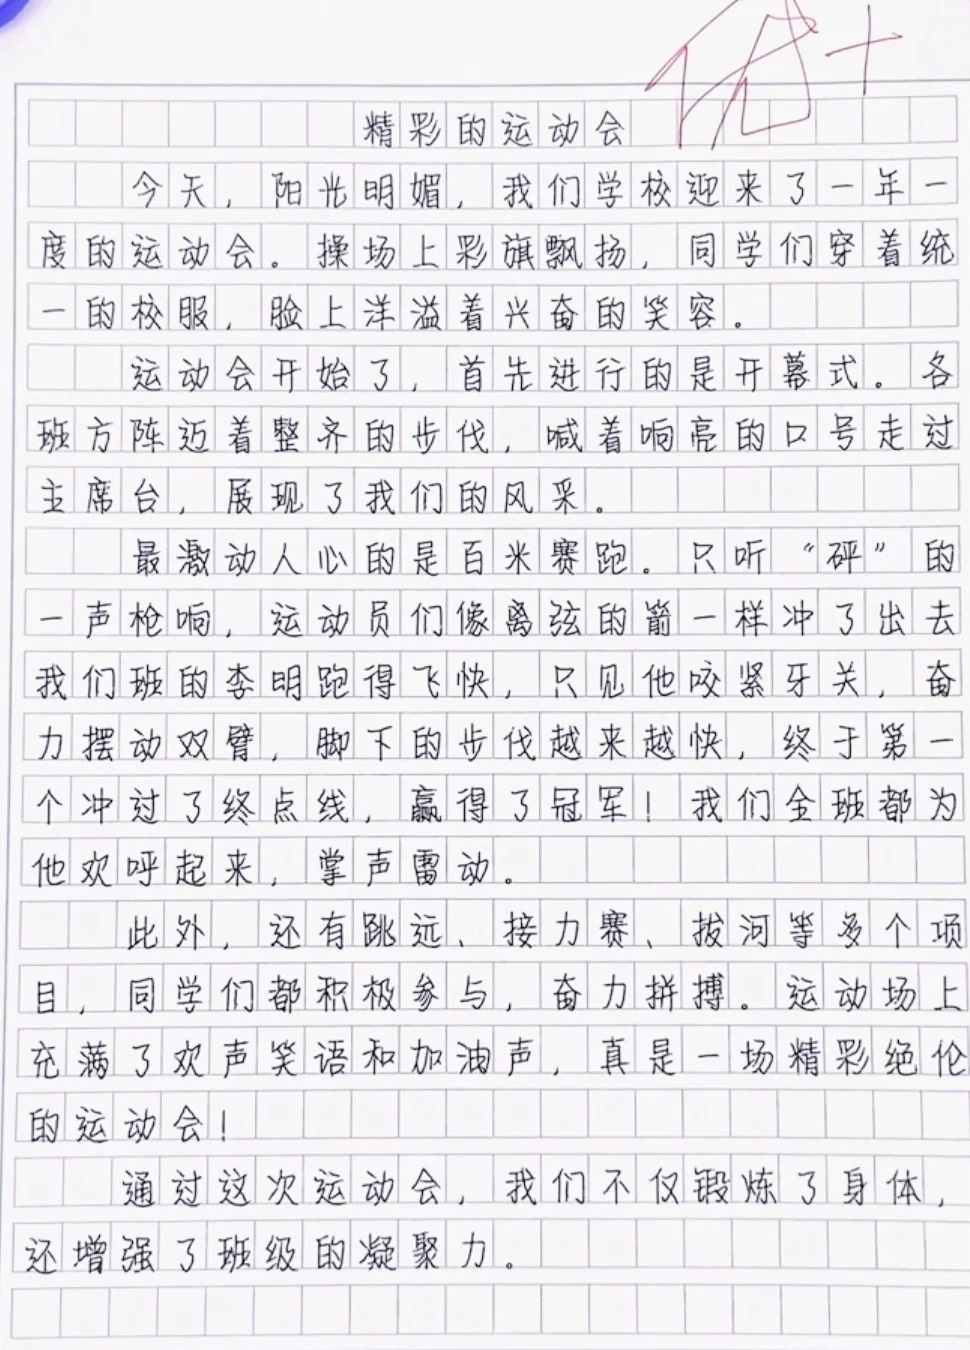 优+
精彩的运动会
今天，阳光明媚，我们学校迎来了一年一
度的运动会。操场上彩旗飘扬，同学们穿着统
一的校服，脸上洋溢着兴奋的笑容。
运动会开始了，首先进行的是开幕式。各
班方阵迈着整齐的步伐，喊着响亮的口号走过
主席台，展现了我们的风采。
最激动人心的是百米赛跑。只听“砰”的
一声枪响，运动员们像离弦的箭一样冲了出去
我们班的李明跑得飞快，只见他咬紧牙关，奋
力摆动双臂，脚下的步伐越来越快，终于第一
个冲过了终点线，赢得了冠军！我们全班都为
他欢呼起来，掌声雷动。
此外，还有跳远、接力赛、拔河等多个项
目，同学们都积极参与，奋力拼搏。运动场上
充满了欢声笑语和加油声，真是一场精彩绝伦
的运动会！
通过这次运动会，我们不仅锻炼了身体，
还增强了班级的凝聚力。